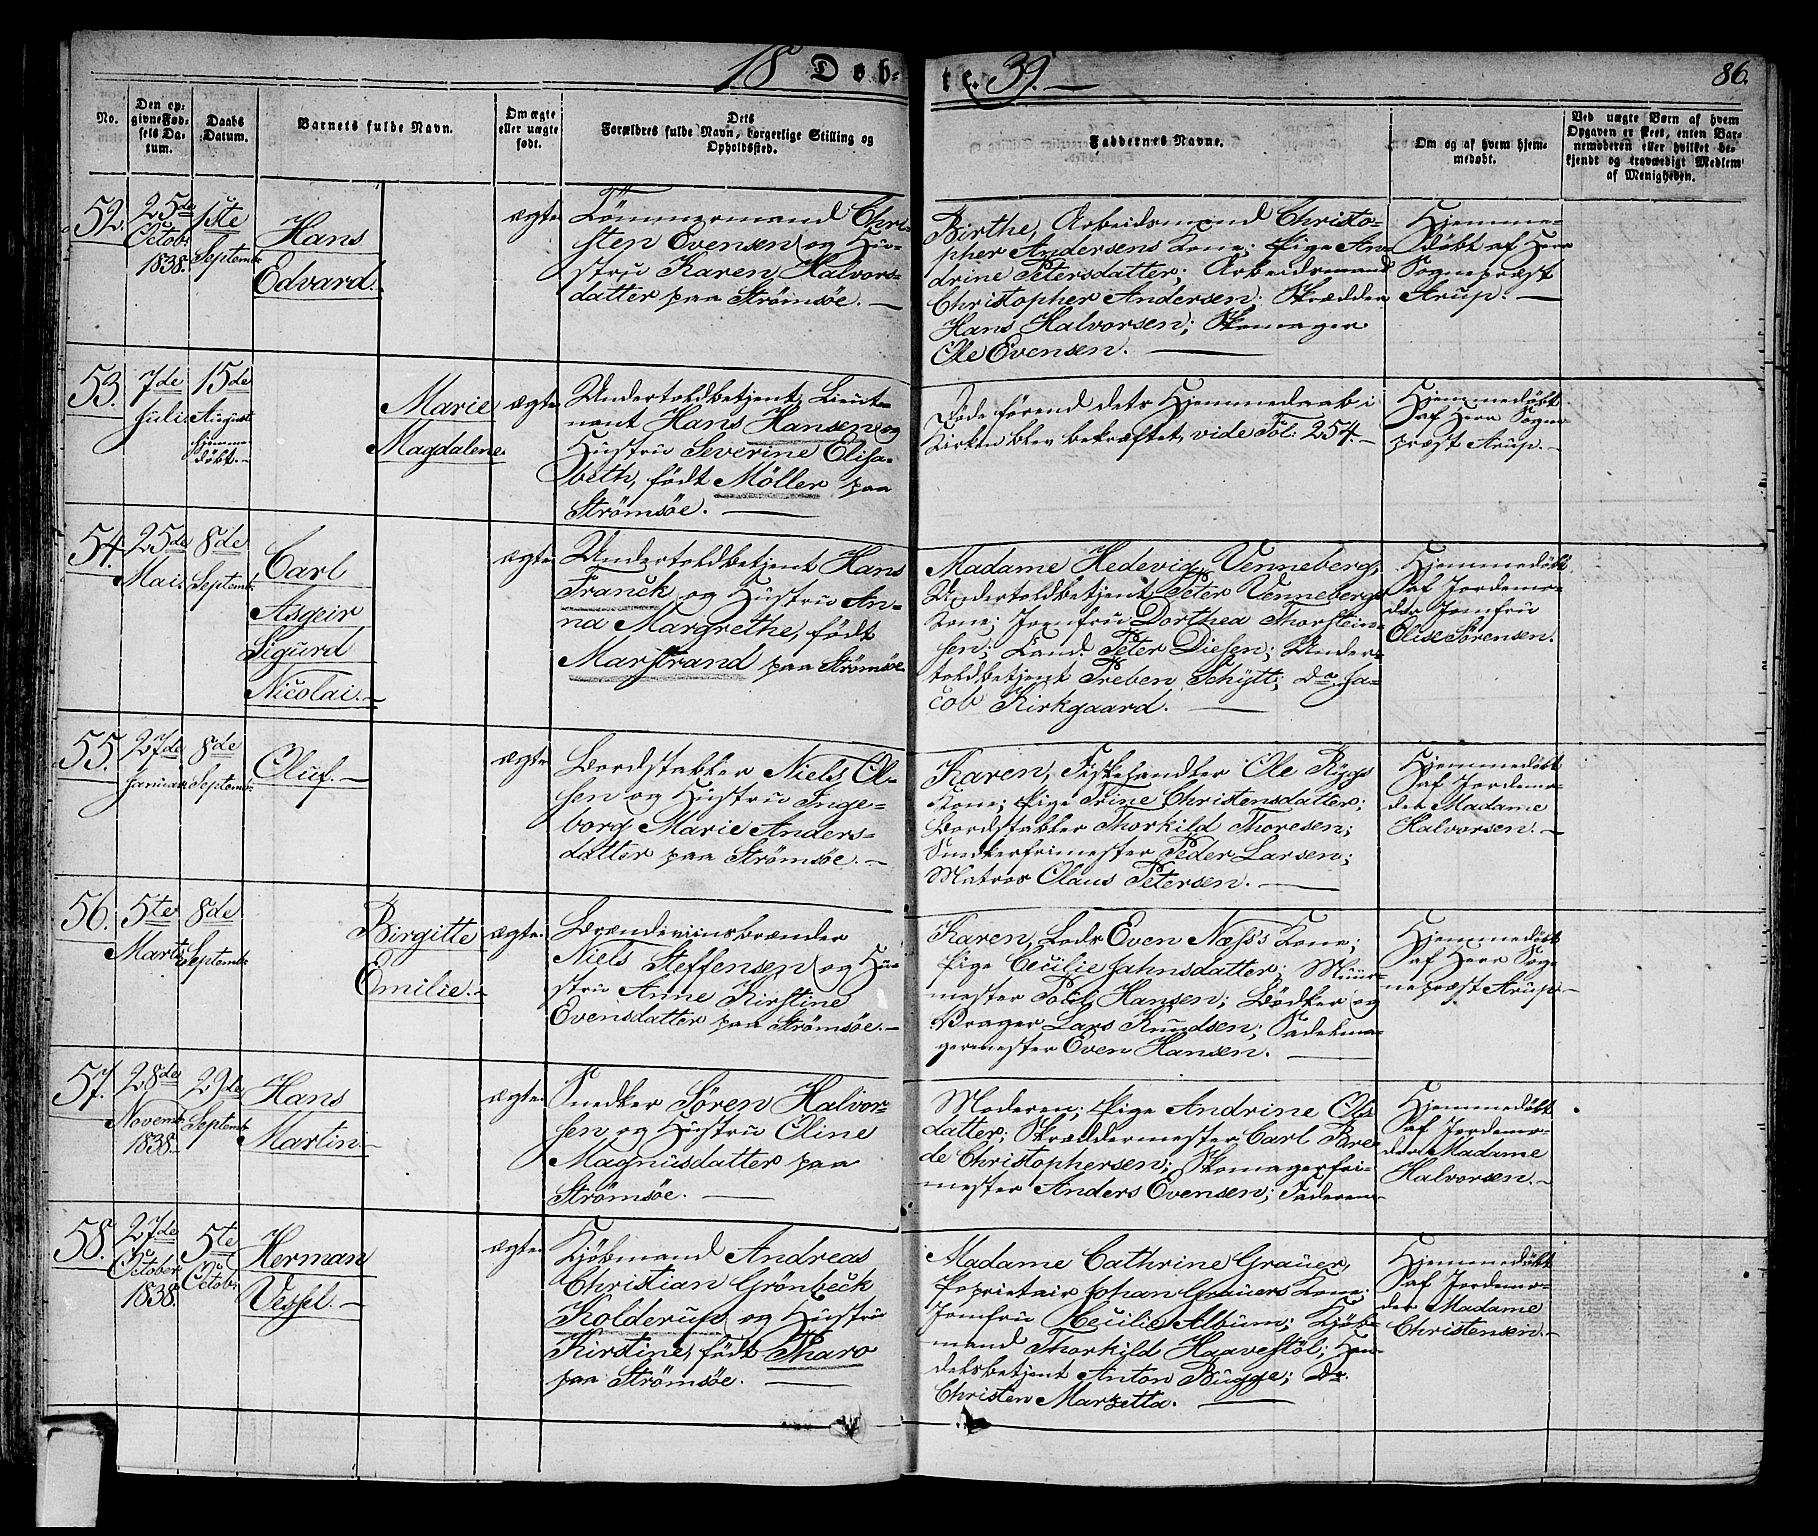 18 Döb-
te. 39.
86.
No.
Den op-
givne Fød-
sels Da-
tum.
Daabs
Datum.
Barnets fulde Navn.
Om ægte
eller uægte
født.
Dets
Forældres fulde Navn, borgerlige Stilling og
Opholdssted.
Faddernes Navne.
Om og af hvem hjem-
medøbt.
Ved uægte Børn af hvem
Opgaven er skeet, enten Bar-
nemoderen eller hvilket be-
kjendt og troværdigt Medlem
af Menigheden.
52.
25de
Octobr
1838.
1ste
Septembr
Hans
Edvard.
ægte
Tömmermand Chri-
sten Evensen og Hu-
stru Karen Halvors-
datter paa Strömsöe. —
Birthe, Arbeidsmand Christo-
pher Andersens Kone; Pige An-
drine Petersdatter; Arbeidsmand
Christopher Andersen. Skrædder
Hans Halvorsen; Skomager
Ole Evensen. —
Hjemme-
döbt af Herr
Sognepræst
Arup. —
53.
7de
Juli
15de
August
hjemme-
döbt. —
Marie
Magdalene.
ægte
Undertoldbetjent, Lieute-
nant Hans Hansen og
Hustru Severine Elisa-
beth, födt Möller paa
Strömsöe. —
Döde förend dets Hjemmedaab i
Kirken blev bekræftet, vide Fol: 254. —
Hjemmedöbt
af Herr Sogne-
præst Arup. —
54.
25de
Mai
8de
Septembr
Carl
Asgeir
Sigurd
Nicolai. —
ægte
Undertoldbetjent Hans
Franck og Hustru An-
na Margrethe, födt
Marstrand paa Strömsöe
Madame Hedevig Venneberg,
Undertoldbetjent Peter Vennebergs
Kone; Jomfru Dorthea Thorstein-
sen; Cand. Peter Diesen; Under-
toldbetjent Preben Schytt; Do Ja-
cob Kirkgaard. —
Hjemmedöbt
af Jordemo-
der Jomfru
Elise Sörensen.
55.
27de
Januar
8de
Septembr
Oluf. —
ægte
Bordstabler Niels Ol-
sen og Hustru Inge-
borg Marie Anders-
datter paa Strömsöe. —
Karen, Fiskehandler Ole Ryggs
Kone; Pige Trine Christensdatter;
Bordstabler Thorkild Thoresen;
Snedkerfrimester Peder Larsen;
Matros Claus Petersen. —
Hjemmedöbt
af Jordemo-
der Madame
Halvorsen. —
56.
5te
Marts
8de
Septembr
Birgitte
Emilie. —
ægte
Brændeviinsbrænder
Niels Steffensen og Hu-
stru Anne Kirstine
Evensdatter paa Strömsöe. —
Karen, Lods Even Næss's Kone;
Pige Cecilie Jahnsdatter; Muur-
mester Poul Hansen; Bödker og
Brager Lars Knudsen; Sadelma-
germester Even Hansen. —
Hjemmedöbt
af Herr Sog-
nepræst Arup. —
57.
28de
Novembr
1838.
29de
Septembr
Hans
Martin —
ægte
Snedker Sören Halvor-
sen og Hustru Oline
Magnusdatter paa
Strömsöe. —
Moderen; Pige Andrine Ols-
datter; Skræddermester Carl Bre-
de Christophersen; Skomagerfri-
mester Anders Evensen; Faderen.
Hjemmedöbt
af Jordemo-
der Madame
Halvorsen. —
58.
27de
October
1838.
5te
Octobr
Herman
Vessel. —
ægte
Kjöbmand Andreas
Christian Grönbeck
Kolderup og Hustru
Kirstine, födt Tharo
paa Strömsöe. —
Madame Cathrine Grauer,
Proprietair Johan Grauers Kone;
Jomfru Cecilie Album; Kjöb-
mand Thorkild Haavestöl; Han-
delsbetjent Anton Bugge; Do
Christen Marzetta. —
Hjemmedöbt
af Jordemo-
der Madame
Christensen. —